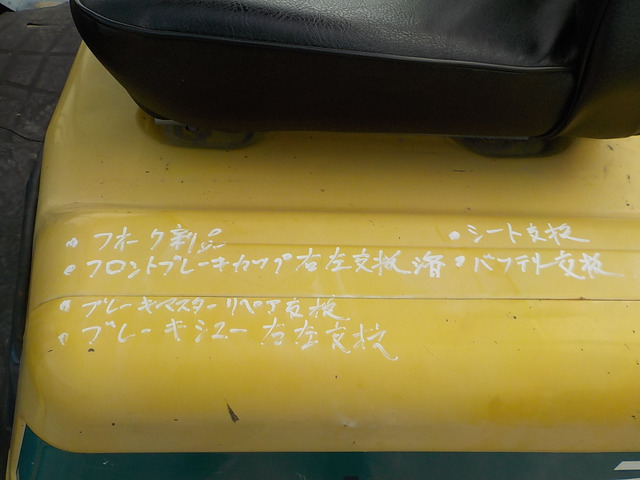 • フォーク新品
• シート交換
• フロントブレーキカップ右左交換済
• バッテリー交換
• ブレーキマスターリペア交換
• ブレーキシュー右左交換